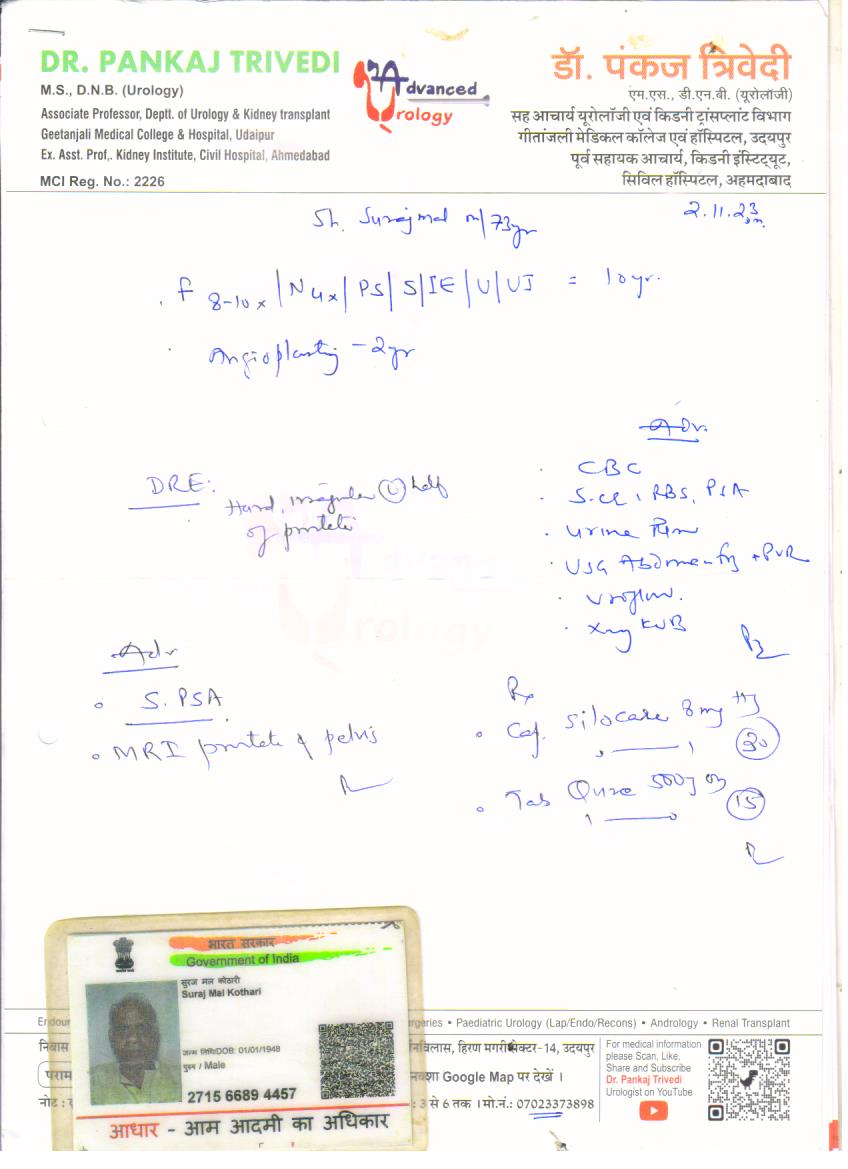 DR. PANKAJ TRIVEDI
M.S., D.N.B. (Urology)
Associate Professor, Deptt. of Urology & Kidney transplant
Geetanjali Medical College & Hospital, Udaipur
Ex. Asst. Prof,. Kidney Institute, Civil Hospital, Ahmedabad
MCI Reg. No.: 2226
Advanced
Urology
डॉ. पंकज त्रिवेदी
एम.एस., डी.एन.बी. (यूरोलॉजी)
सह आचार्य यूरोलॉजी एवं किडनी ट्रांसप्लांट विभाग
गीतांजली मेडिकल कॉलेज एवं हॉस्पिटल, उदयपुर
पूर्व सहायक आचार्य, किडनी इंस्टिट्यूट,
सिविल हॉस्पिटल, अहमदाबाद
2.11.23
Sh. Surajmal m/73yr
F 8-10x | N4x | PS | S | IE | U | UI = 10yr.
Angioplasty - 2yr
DRE: Hard, irregular (L) half
of prostate
Adv.
CBC
S.Cr, RBS, PSA
Urine
USG Abdomen + PVR
Uroflow.
Xray KUB
Adv
S. PSA
MRI prostate & pelvis
Rx
Cap. Silocare 8mg
30
Tab 500
15
भारत सरकार
Government of India
सुरज मल कोठारी
Suraj Mal Kothari
जन्म तिथि/DOB: 01/01/1948
पुरुष / Male
2715 6689 4457
आधार - आम आदमी का अधिकार
Endour
rgeries • Paediatric Urology (Lap/Endo/Recons) • Andrology • Renal Transplant
निवास
निविलास, हिरण मगरी सेक्टर-14, उदयपुर
पराम
नक्शा Google Map पर देखें ।
नोट :
: 3 से 6 तक । मो.नं.: 07023373898
For medical information
please Scan, Like,
Share and Subscribe
Dr. Pankaj Trivedi
Urologist on YouTube